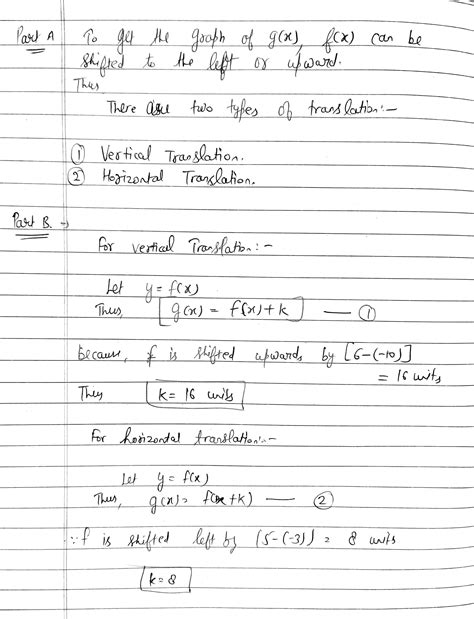 Part A To get the graph of g(x), f(x) can be
shifted to the left or upward.
Thus
There are two types of translation:-
① Vertical Translation.
② Horizontal Translation.
Part B. →
For vertical Translation:-
Let y = f(x)
Thus g(x) = f(x) + k — ①
because, f is shifted upwards by [6-(-10)]
= 16 units
Thus k = 16 units
For horizontal translation:-
Let y = f(x)
Thus, g(x) = f(x+k) — ②
∵ f is shifted left by (5-(-3)) = 8 units
k = 8